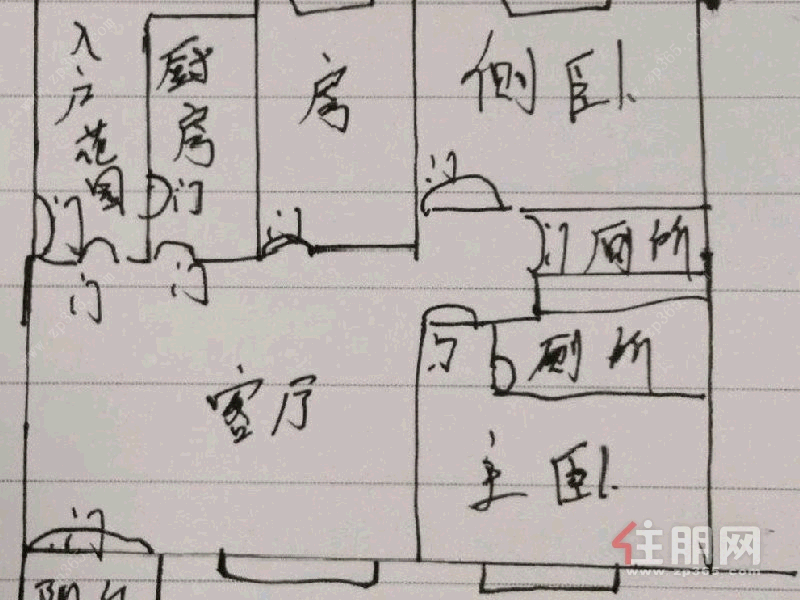 入户花园
厨房
房
侧卧
门
门
门
门
门厕所
门
门
门
厕所
客厅
主卧
门
阳台
住朋网
www.zp365.com